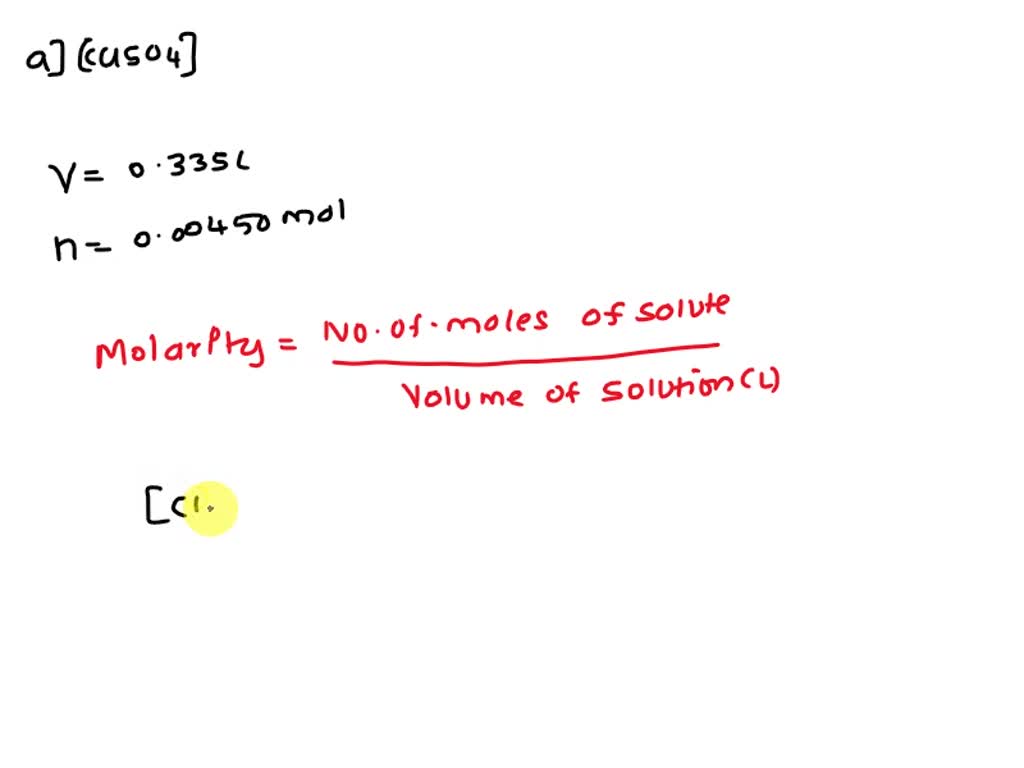 a] [CuSO4]
V = 0.335L
n = 0.00450 mol
Molarity = No. of. moles of solute
Volume of solution (L)
[C